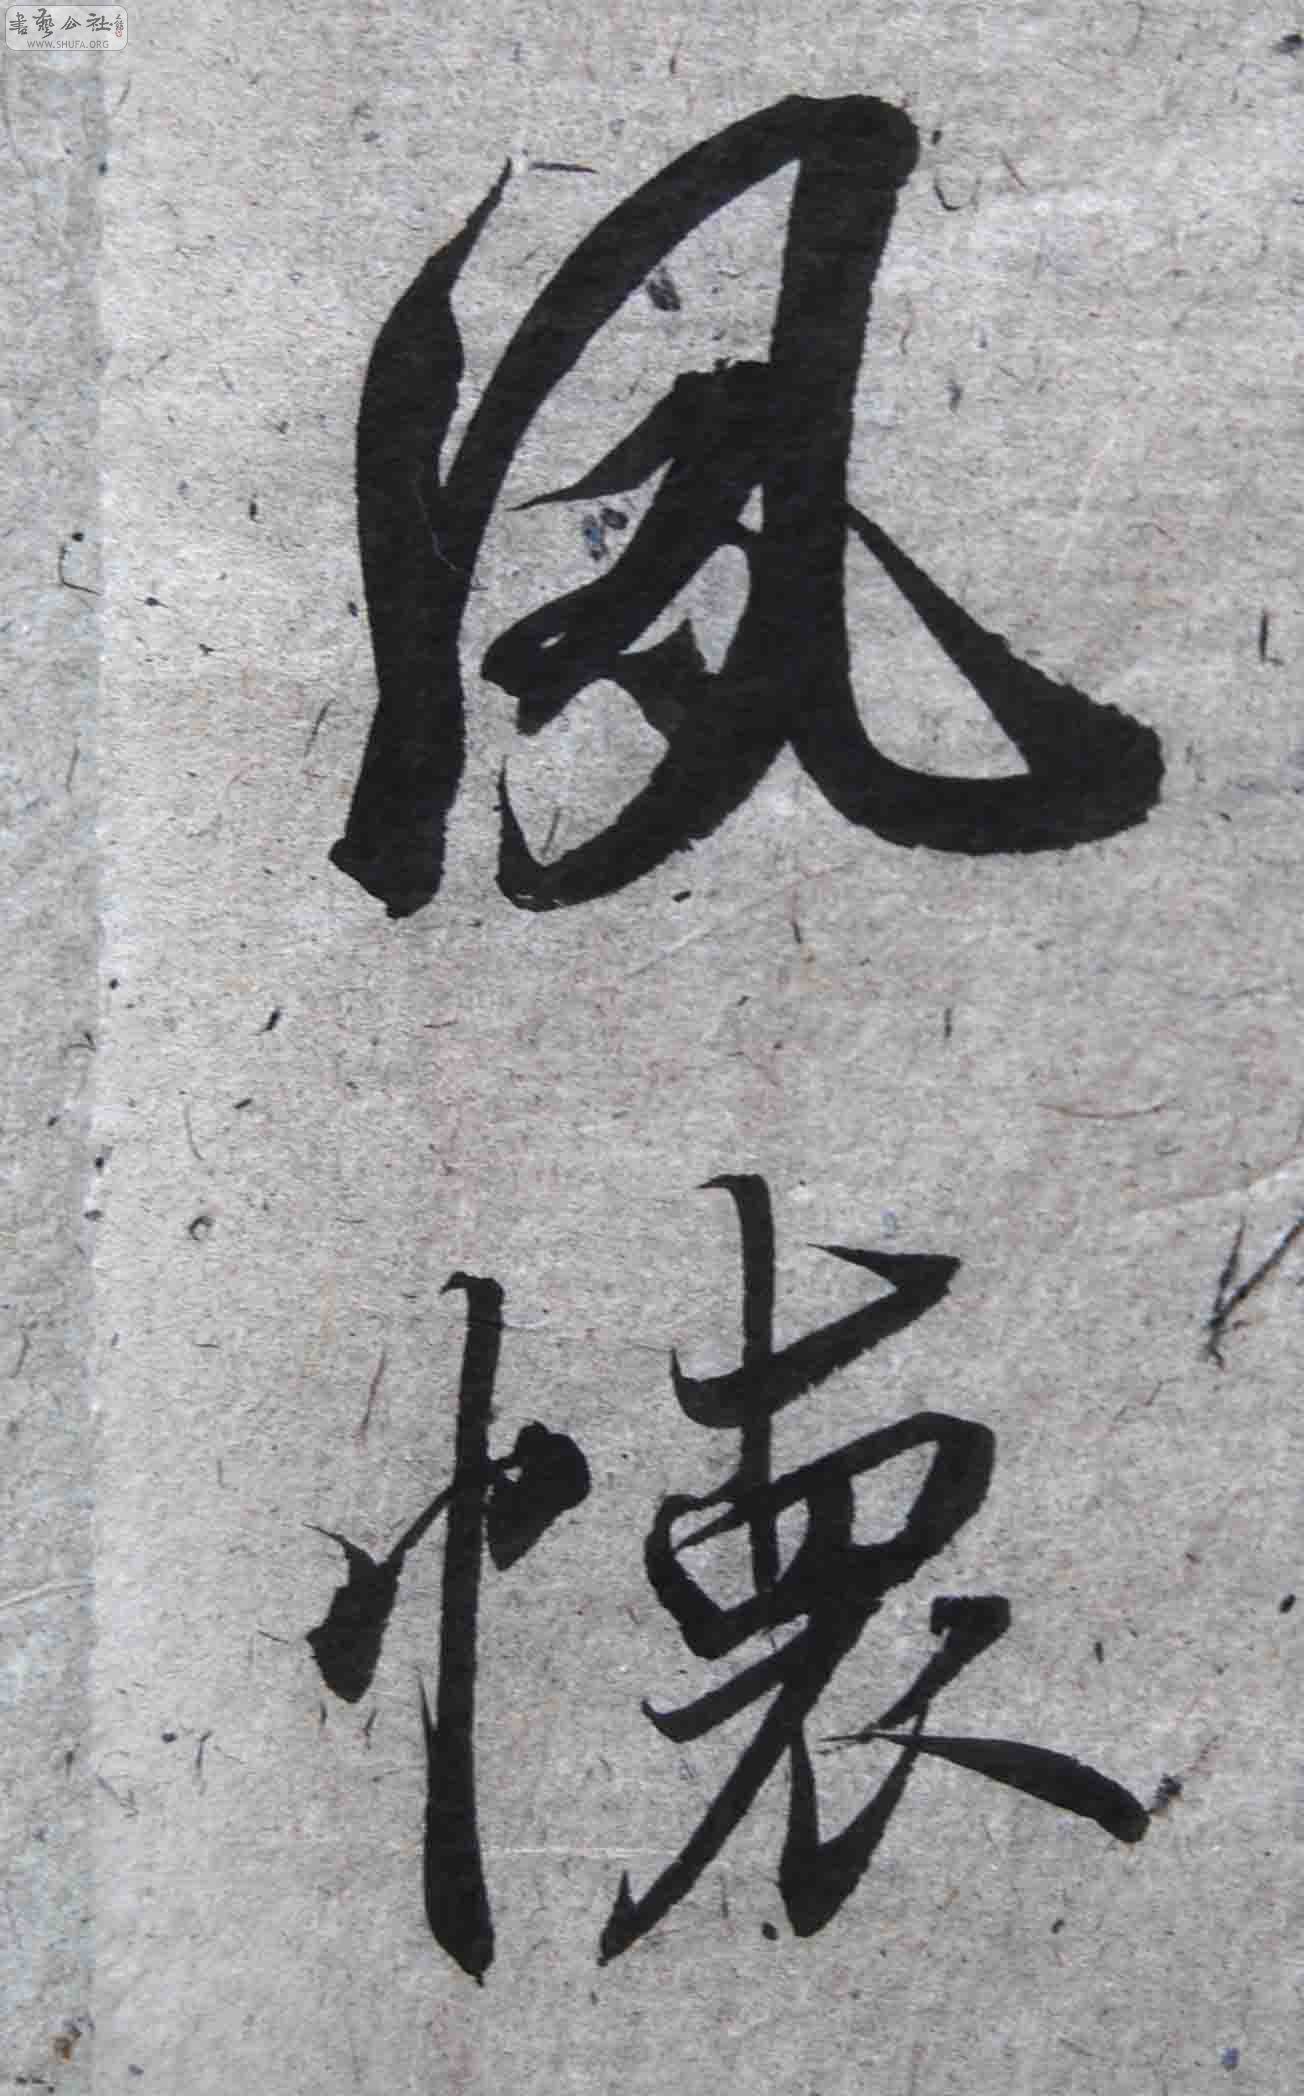 書藝公社
WWW.SHUFA.ORG
風
懷